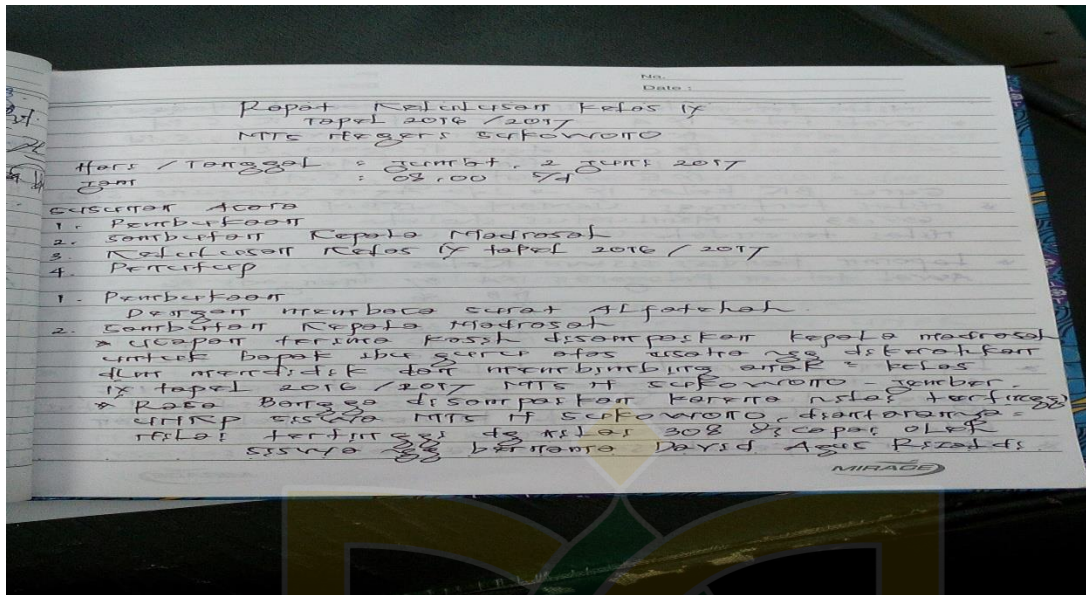 No.
Date :
Rapat Kelulusan Kelas IX
Tapel 2016 / 2017
MTs Negeri Sukowono
Hari / Tanggal : Jum'at, 2 Juni 2017
Jam : 08.00 s/d
Susunan Acara
1. Pembukaan
2. Sambutan Kepala Madrasah
3. Kelulusan Kelas IX tapel 2016 / 2017
4. Penutup
1. Pembukaan
Dengan membaca surat Alfatehah
2. Sambutan Kepala Madrasah
* Ucapan terima kasih disampaikan kepala madrasah
untuk bapak ibu guru atas usaha yg dikerahkan
dlm mendidik dan membimbing anak = kelas
IX tapel 2016 / 2017 MTs N Sukowono - Jember.
* Rasa Bangga disampaikan karena nilai tertinggi
UNKP siswa MTs N Sukowono diantaranya =
Nilai tertinggi dg nilai 308 dicapai oleh
siswa yg bernama David Agus Rizaldi.
MIRAGE